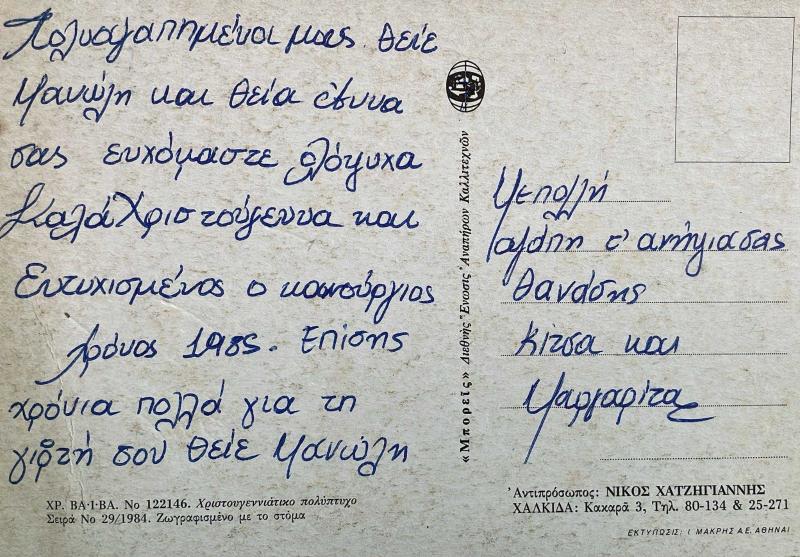 Πολυαγαπημένοι μας θείε
Μανώλη και θεία Άννα
σας ευχόμαστε ολόψυχα
Καλά Χριστούγεννα και
Ευτυχισμένος ο καινούργιος
χρόνος 1985. Επίσης
χρόνια πολλά για τη
γιορτή σου θείε Μανώλη
ΧΡ. ΒΑ·Ι·ΒΑ. Νο 122146. Χριστουγεννιάτικο πολύπτυχο
Σειρά Νο 29/1984. Ζωγραφισμένο με το στόμα
«Μπορεῖς» Διεθνὴς Ἕνωσις Ἀναπήρων Καλλιτεχνῶν
Με πολλή
αγάπη τ' ανήψια σας
Θανάσης
Κίτσα και
Μαργαρίτα
Ἀντιπρόσωπος: ΝΙΚΟΣ ΧΑΤΖΗΓΙΑΝΝΗΣ
ΧΑΛΚΙΔΑ: Κακαρᾶ 3, Τηλ. 80-134 & 25-271
ΕΚΤΥΠΩΣΙΣ: Ι ΜΑΚΡΗΣ Α.Ε. ΑΘΗΝΑΙ